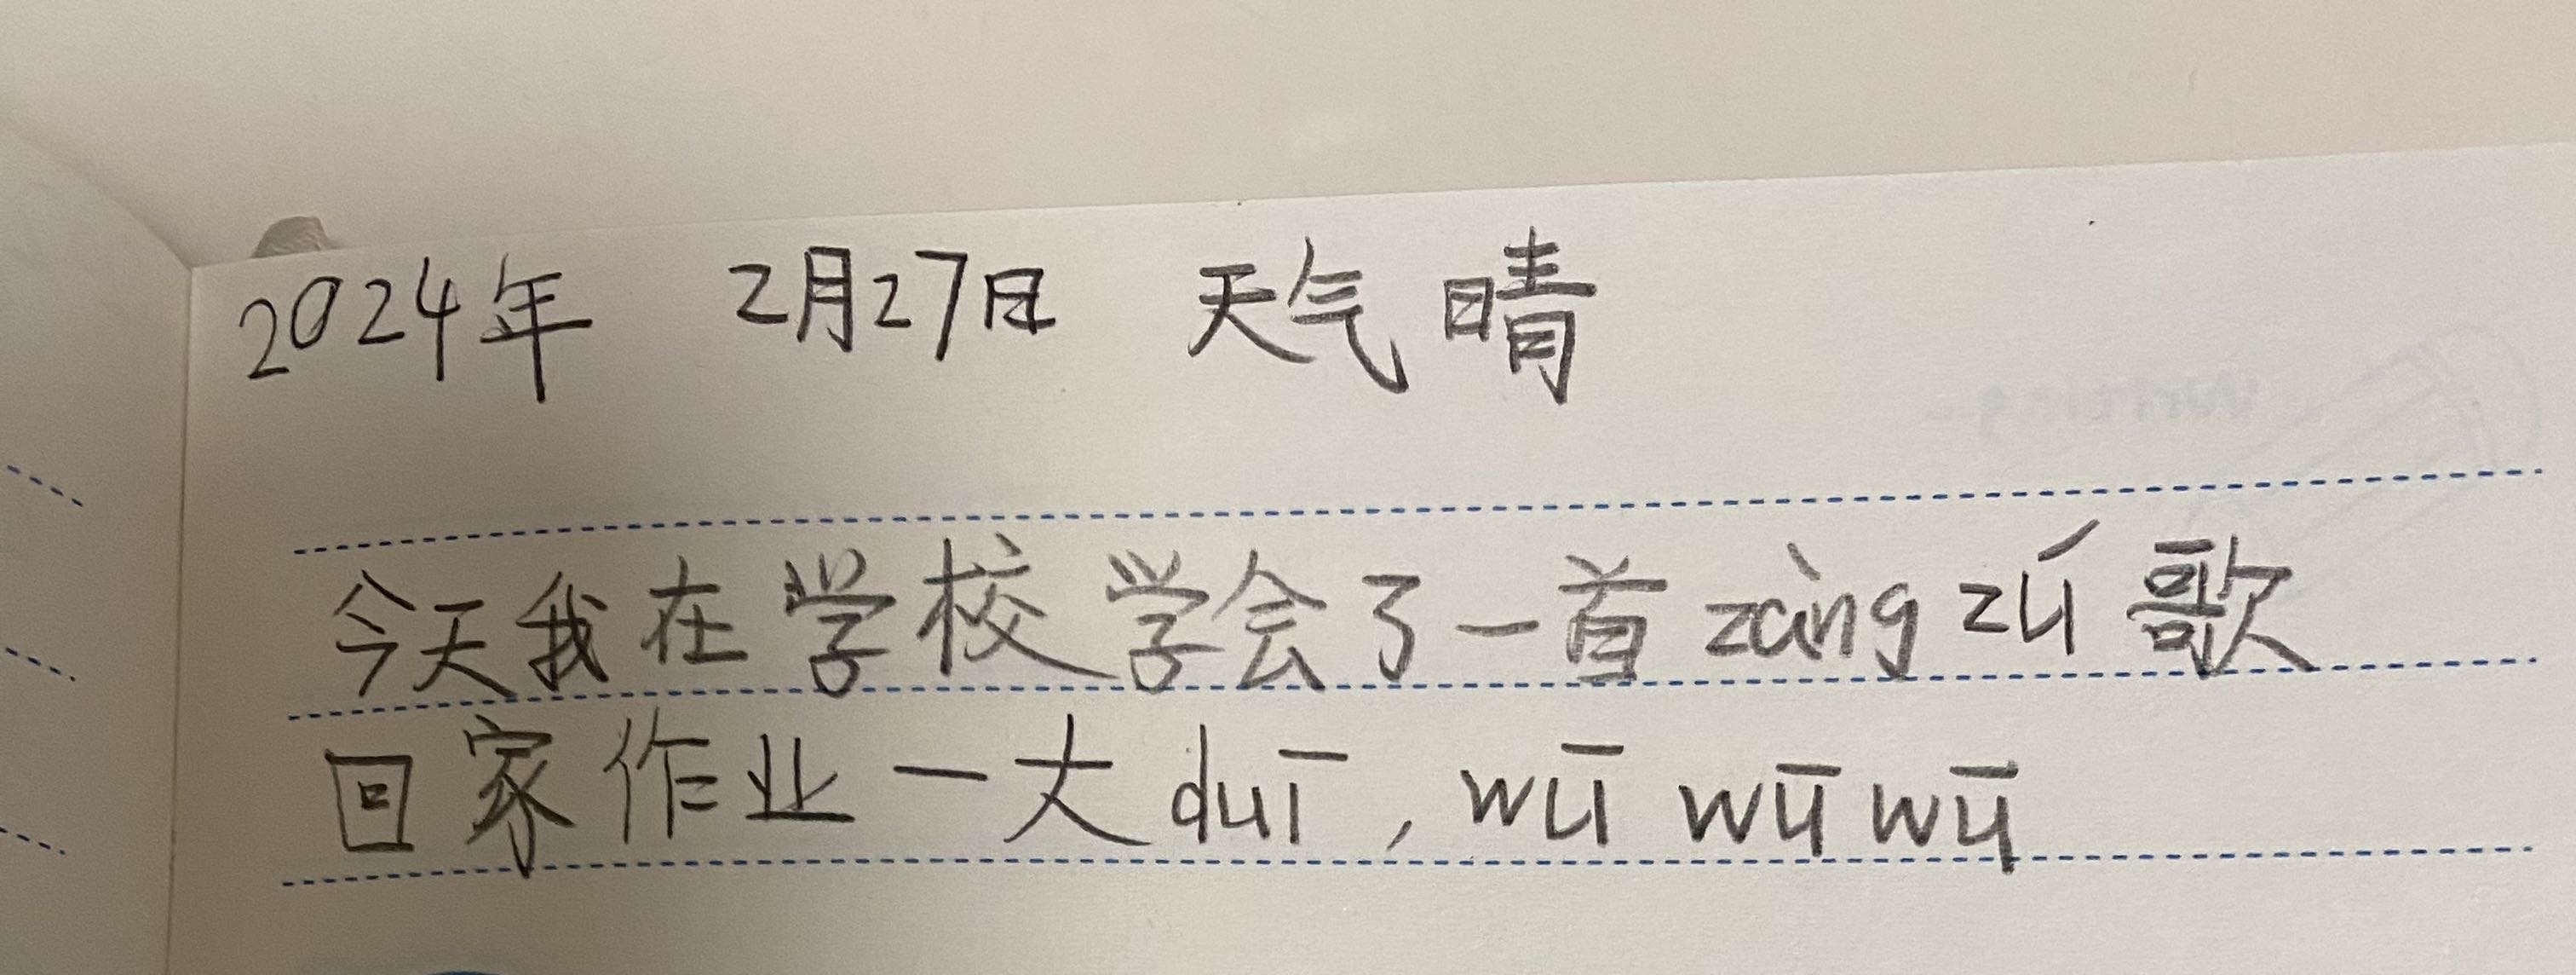 2024年 2月27日 天气 晴
今天我在学校学会了一首 zàng zú 歌
回家作业一大 duī , wū wū wū